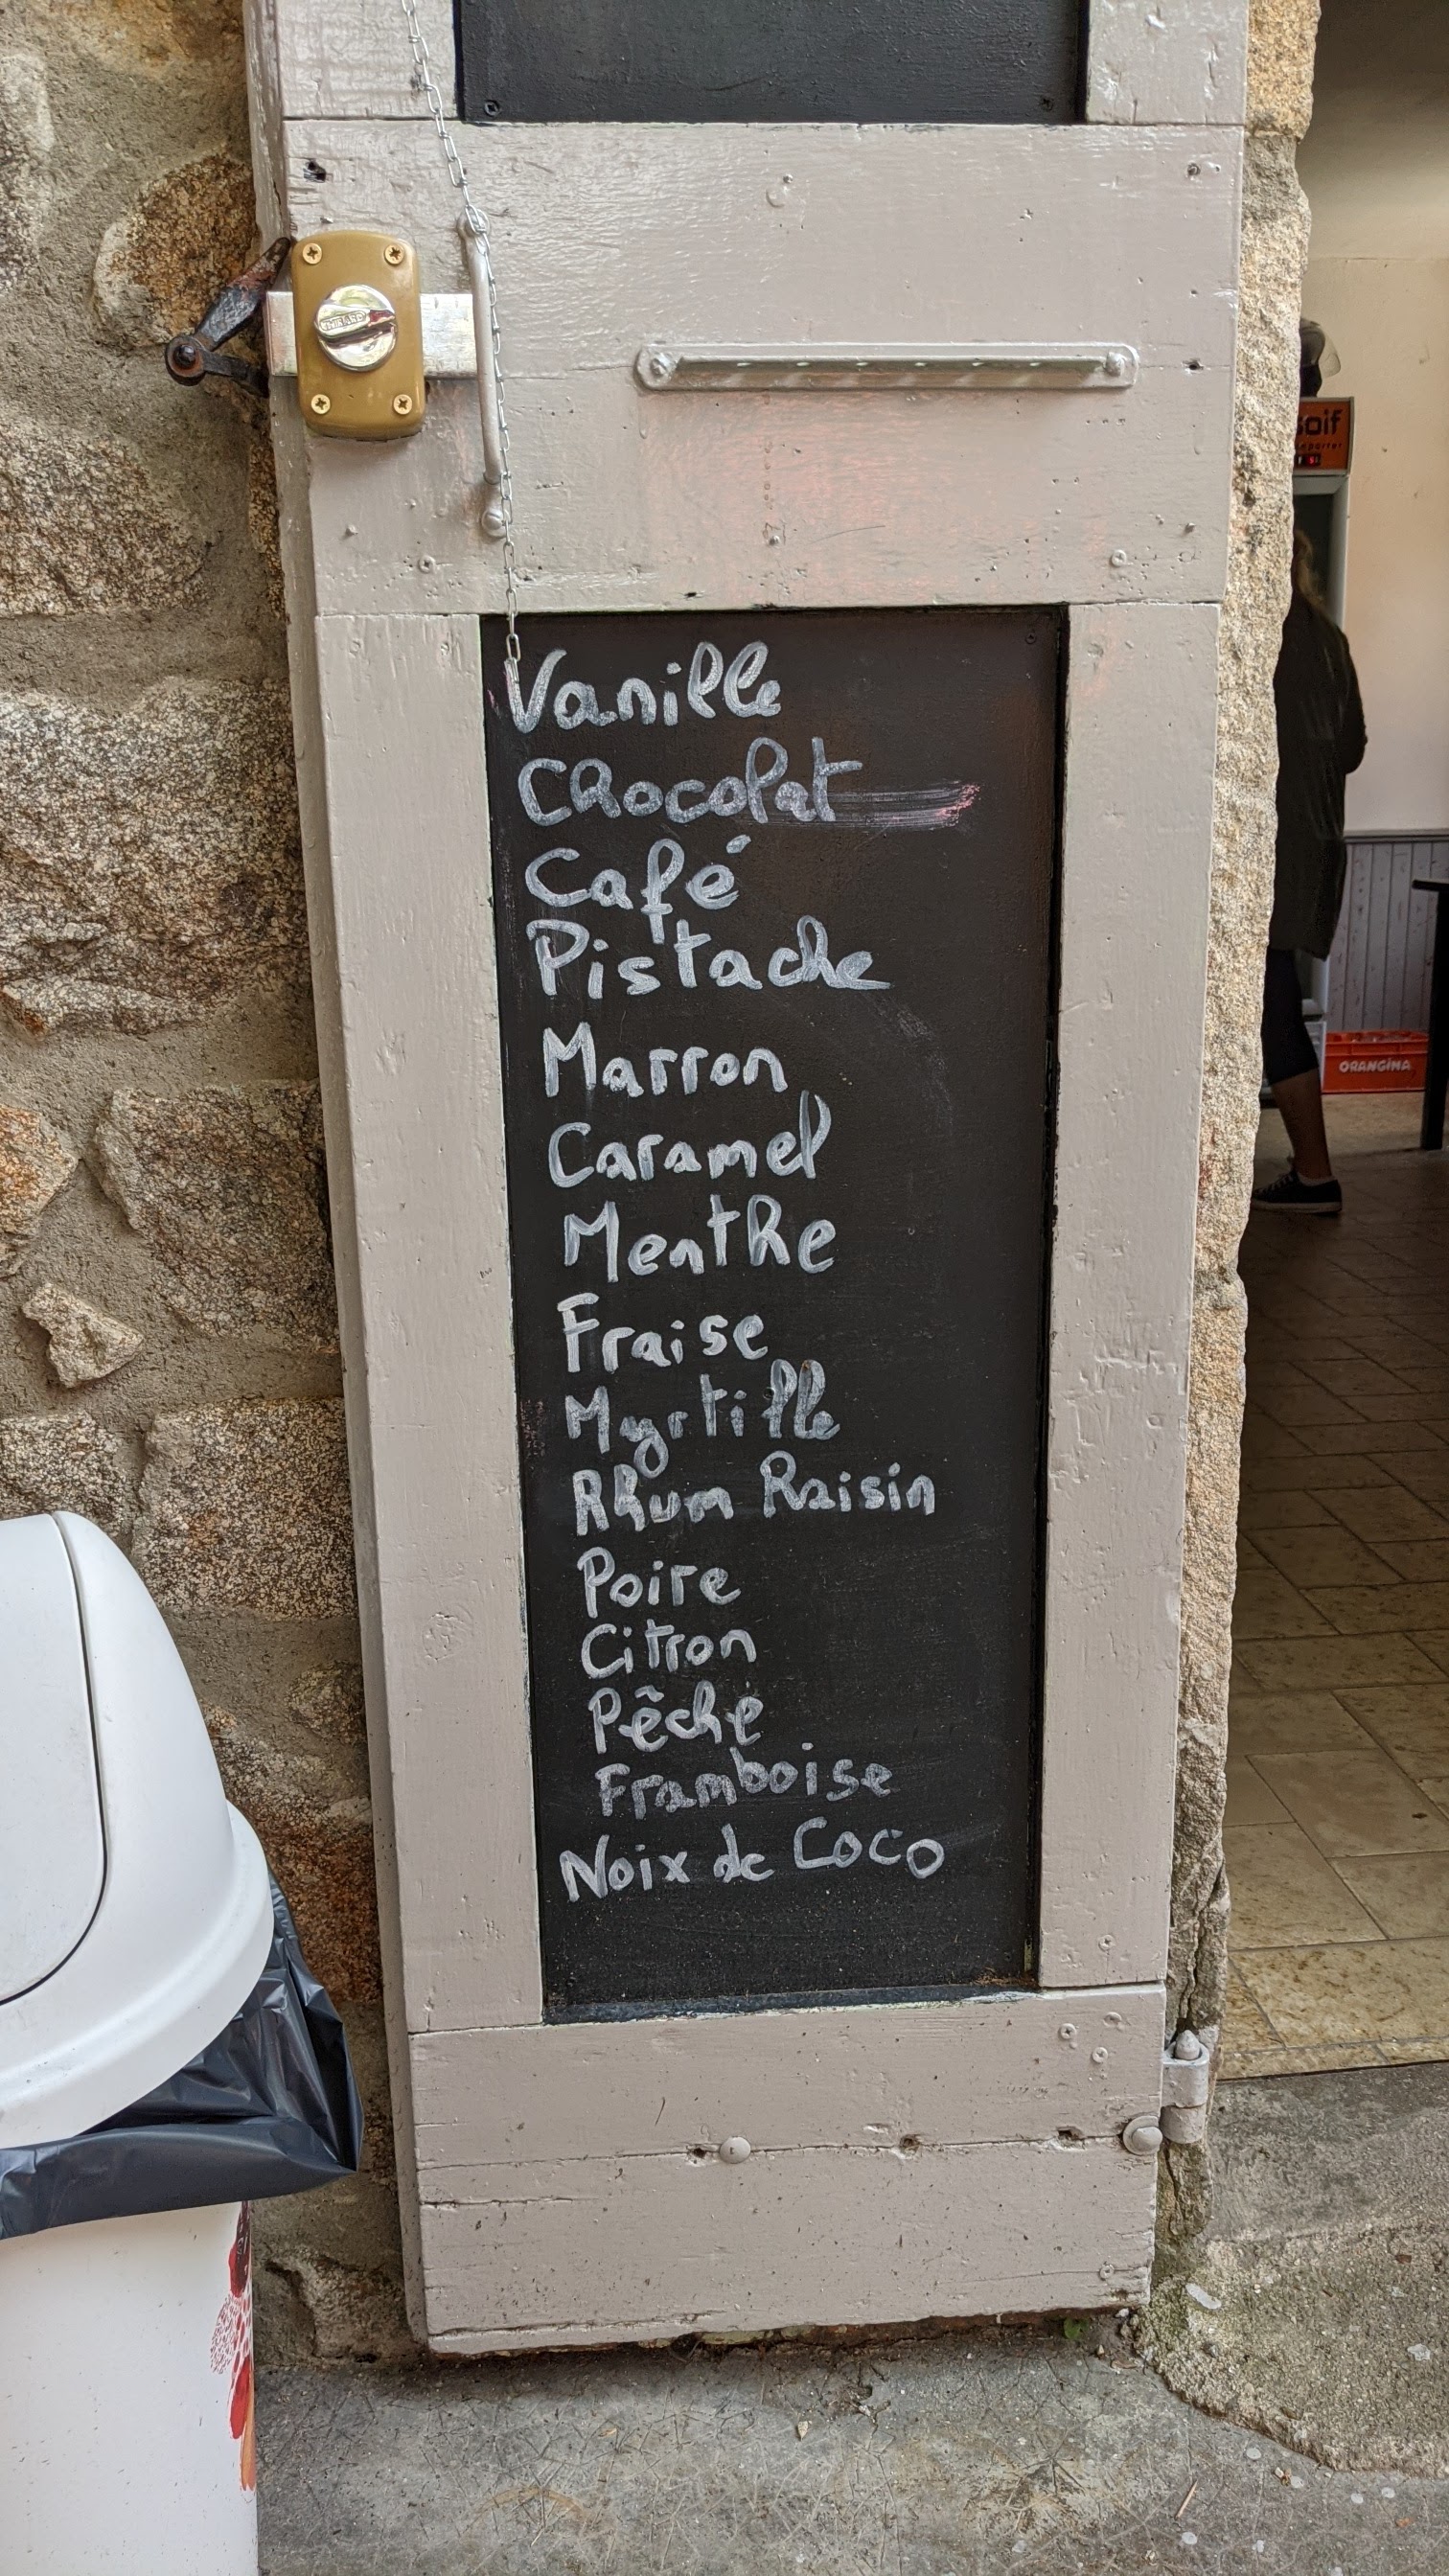 Vanille
Chocolat
Café
Pistache
Marron
Caramel
Menthe
Fraise
Myrtille
Rhum Raisin
Poire
Citron
Pêche
Framboise
Noix de Coco
soif
ORANGINA